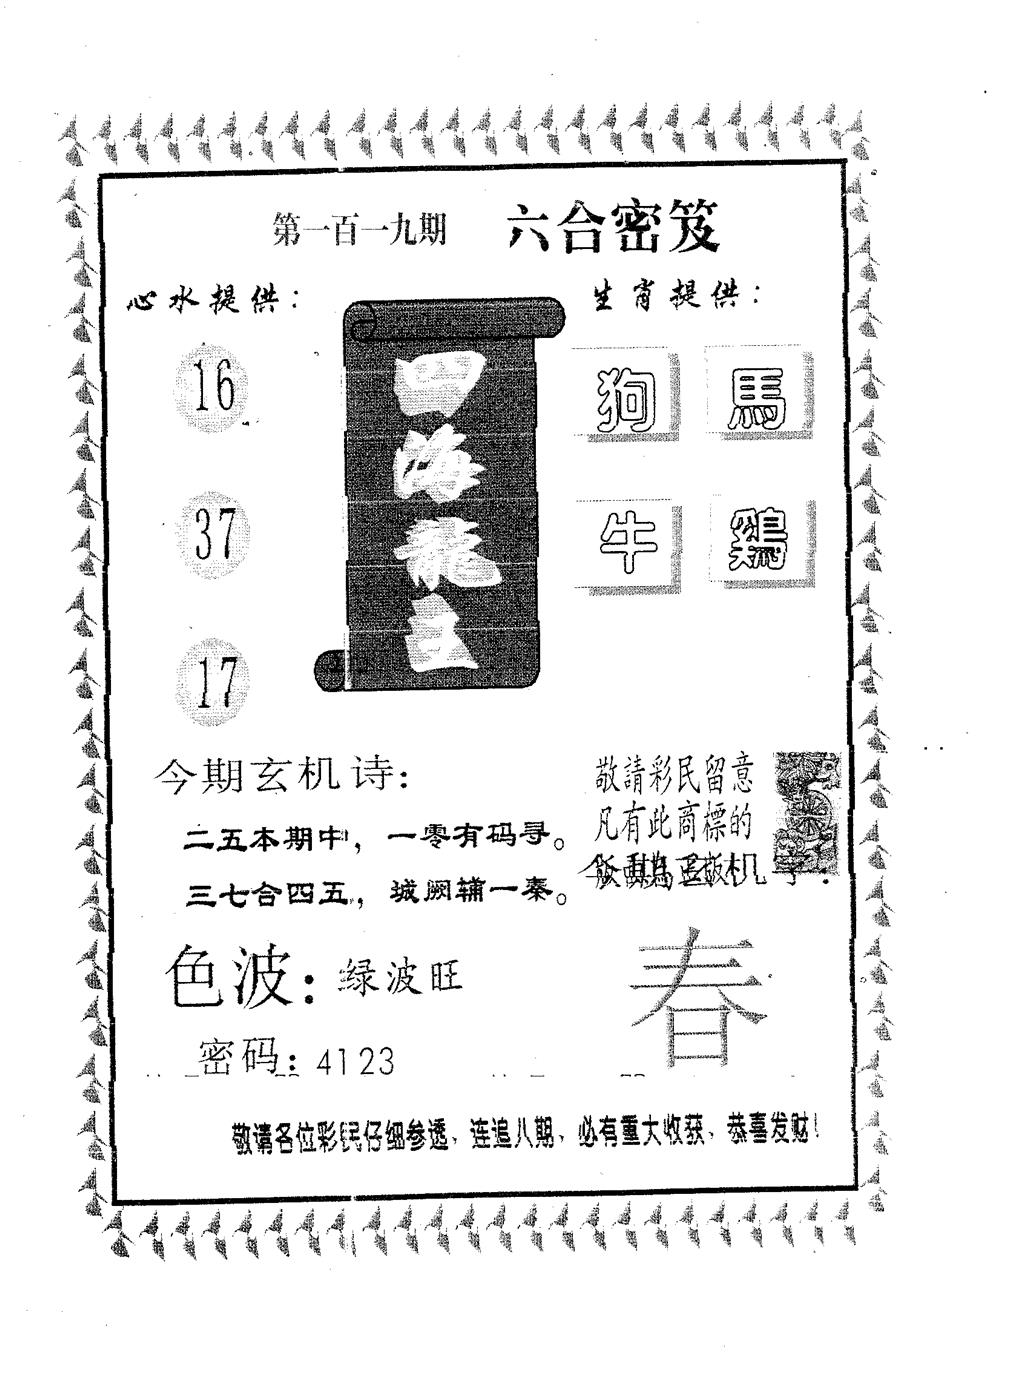 第一百一九期 六合密笈
心水提供：
生肖提供：
16
37
17
四海龍王
狗 馬
牛 鷄
今期玄机诗：
二五本期中，一零有码寻。
三七合四五，城阙辅一秦。
敬請彩民留意
凡有此商標的
色波：绿波旺
密码：4123
春
敬请各位彩民仔细参透、连追八期、必有重大收获、恭喜发财！